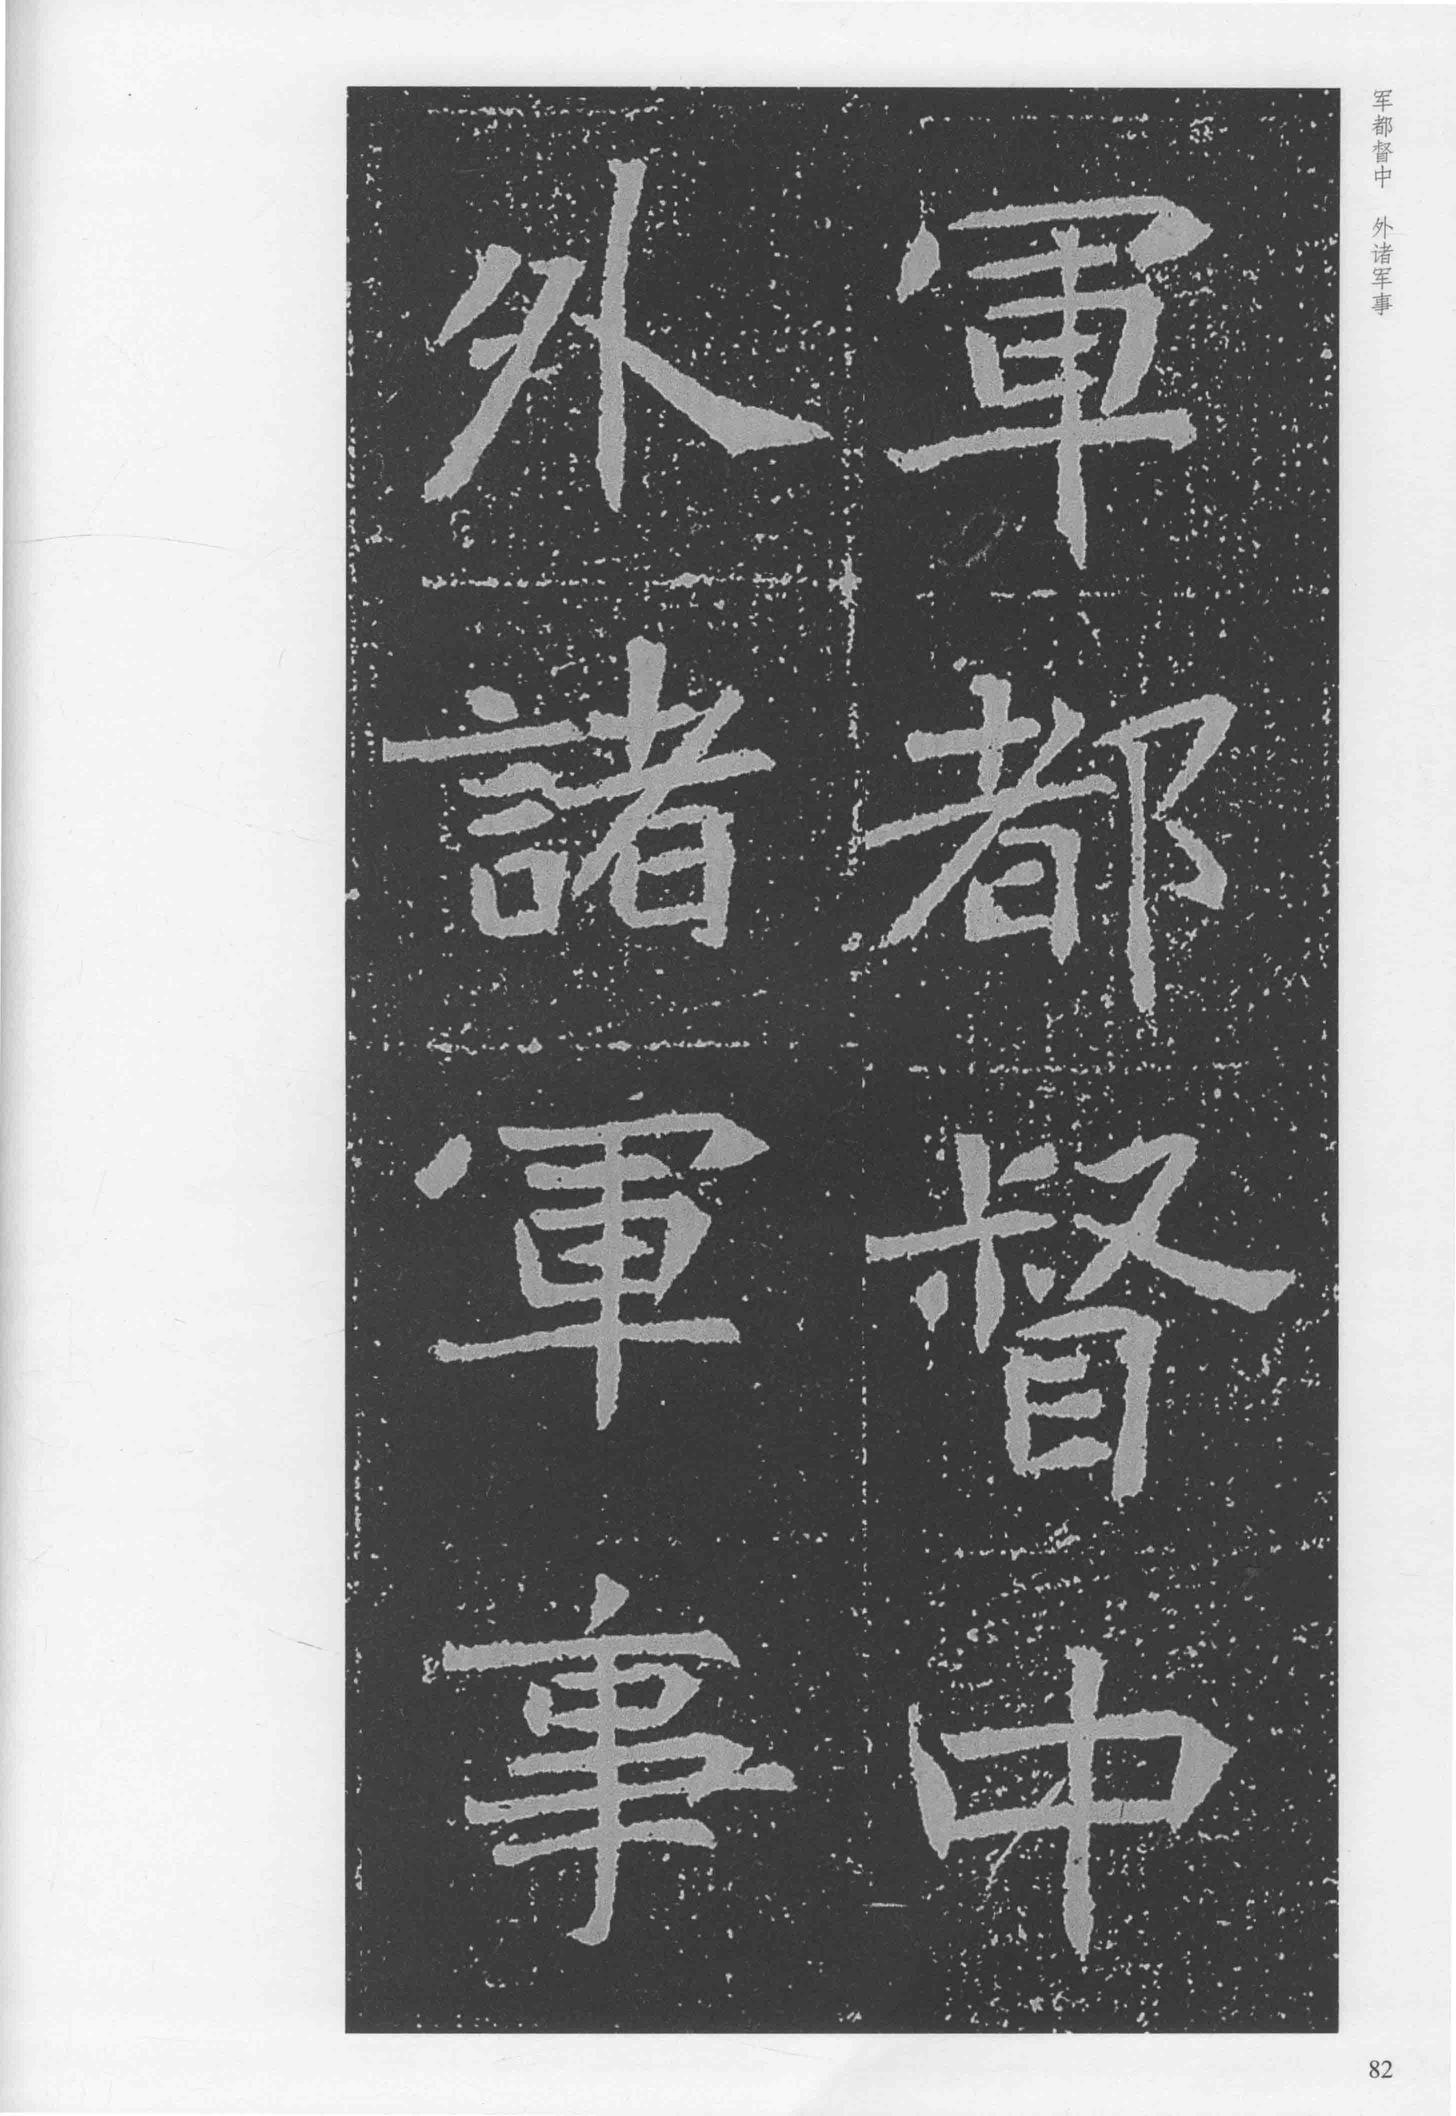 军都督中　外诸军事
軍都督中
外諸軍事
82